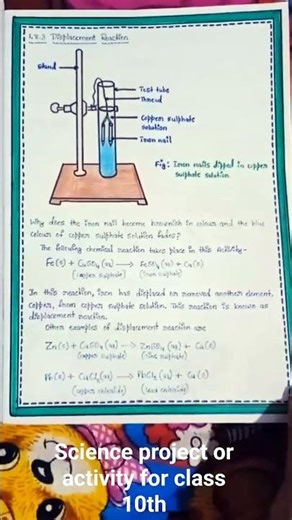 1.2.3 Displacement Reaction
Stand
Test tube
Thread
Copper sulphate
solution
Iron nail
Fig: Iron nails dipped in copper
sulphate solution
Why does the iron nail become brownish in colour and the blue
colour of copper sulphate solution fades?
The following chemical reaction takes place in this Activity-
Fe(s) + CuSO₄(aq) → FeSO₄(aq) + Cu(s)
(copper sulphate) (Iron sulphate)
In this reaction, iron has displaced or removed another element,
copper, from copper sulphate solution. This reaction is known as
displacement reaction.
Other examples of displacement reaction are
Zn(s) + CuSO₄(aq) → ZnSO₄(aq) + Cu(s)
(copper sulphate) (zinc sulphate)
Pb(s) + CuCl₂(aq) → PbCl₂(aq) + Cu(s)
(copper chloride) (lead chloride)
Science project or
activity for class
10th